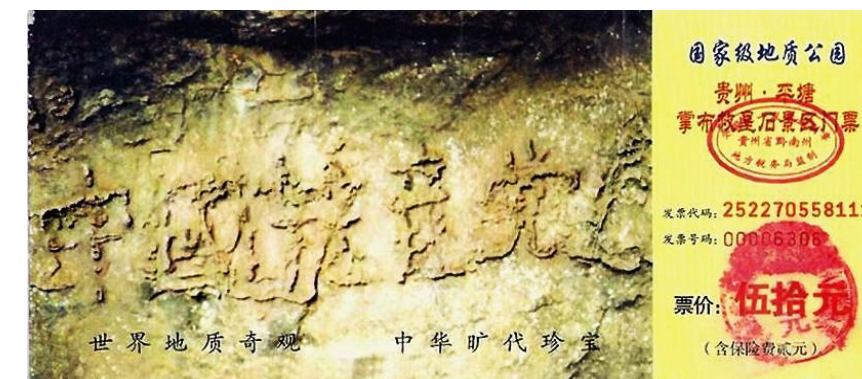 中國共产党亡
世界地质奇观 中华旷代珍宝
国家级地质公园
贵州·平塘
掌布救星石景区门票
贵州省黔南州
地方税务局监制
发票代码: 25227055811
发票号码: 00006306
票价: 伍拾元
(含保险费贰元)